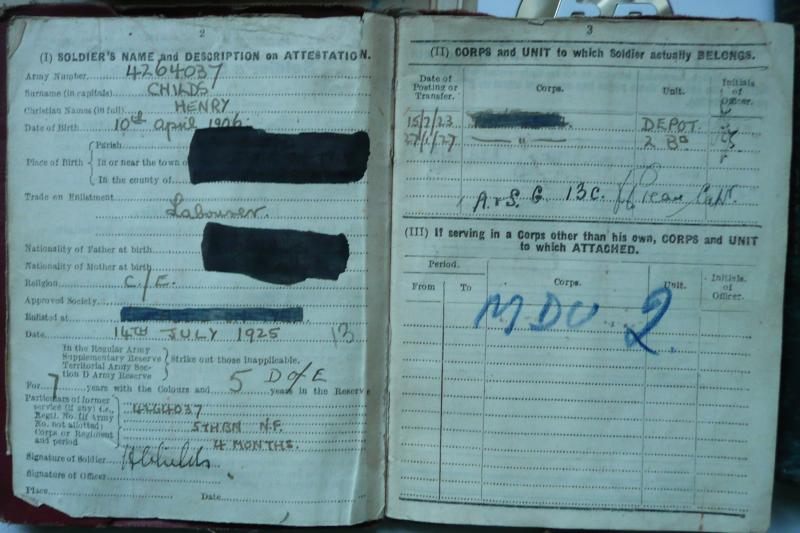 2
(I) SOLDIER'S NAME and DESCRIPTION on ATTESTATION.
Army Number 4264037
Surname (in capitals) CHILDS
Christian Names (in full) HENRY
Date of Birth 10th April 1906
Parish
Place of Birth In or near the town of
In the county of
Trade on Enlistment
Labourer.
Nationality of Father at birth
Nationality of Mother at birth
Religion C/E.
Approved Society
Enlisted at
Date 14TH JULY 1925 13
In the Regular Army
Supplementary Reserve
Territorial Army Section D Army Reserve
Strike out those inapplicable.
D of E
For 7 years with the Colours and 5 years in the Reserve
Particulars of former service (if any) i.e., Regtl. No. (if Army No. not allotted) Corps or Regiment and period
4264037
5TH BN N.F.
4 MONTHS.
Signature of Soldier H Childs
Signature of Officer
Place Date
3
(II) CORPS and UNIT to which Soldier actually BELONGS.
Date of Posting or Transfer. Corps. Unit. Initials of Officer.
15/7/23 DEPOT.
27/1/27 — " — 2 Bn
13C. Capt.
(III) If serving in a Corps other than his own, CORPS and UNIT
to which ATTACHED.
Period. Corps. Unit. Initials of Officer.
From To
MDU 2.